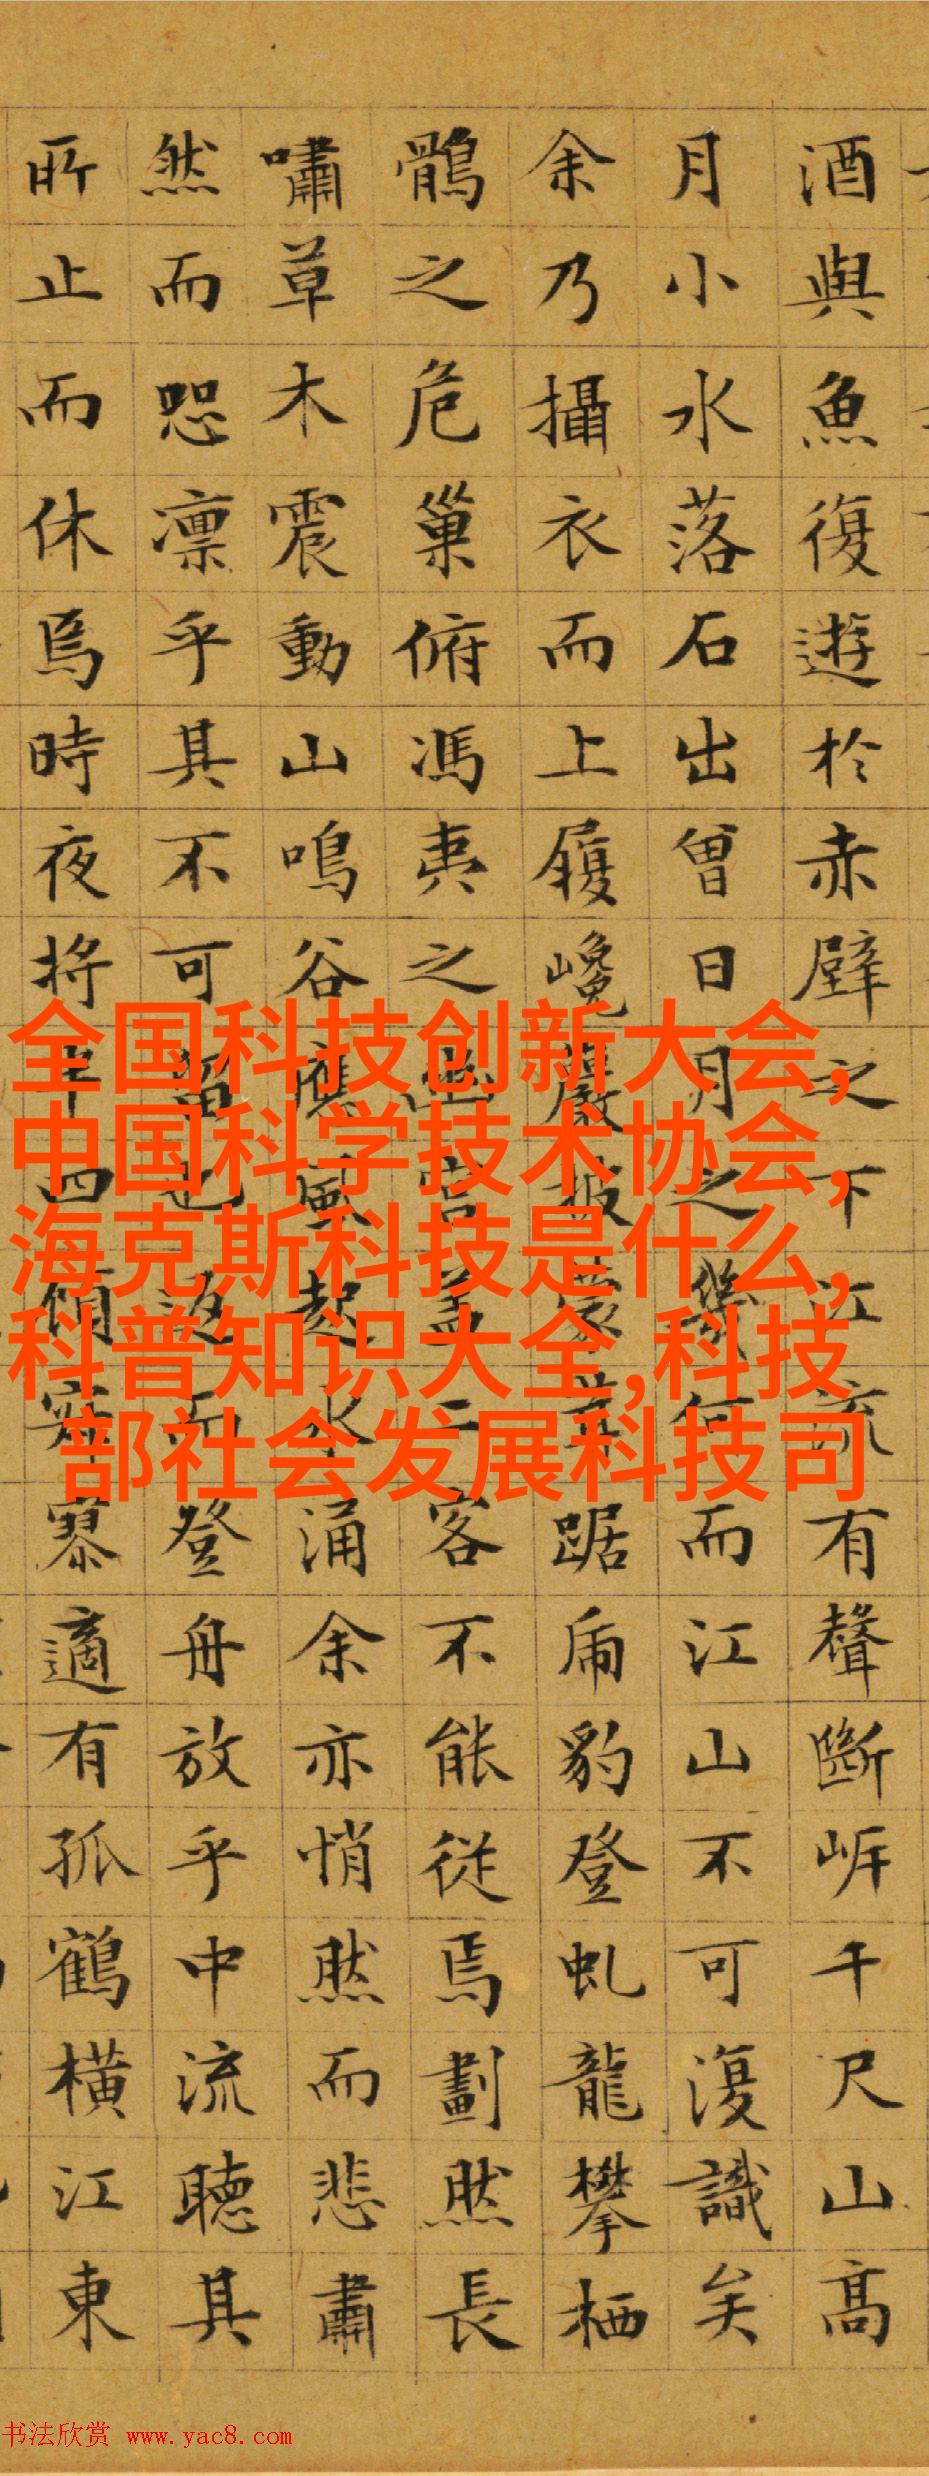 酒與魚復遊於赤壁之下江流有聲斷岸千尺山高
月小水落石出曾日月之幾何而江山不可復識矣
余乃攝衣而上履巉巖披蒙茸踞虎豹登虬龍攀栖
鶻之危巢俯馮夷之幽宮盖二客不能從焉劃然長
嘯草木震動山鳴谷應風起水涌余亦悄然而悲肅
然而恐凛乎其不可留也返而登舟放乎中流聽其
所止而休焉時夜將半四顧寂寥適有孤鶴橫江東
全国科技创新大会,
中国科学技术协会,
海克斯科技是什么,
科普知识大全,科技
部社会发展科技司
书法欣赏 www.yac8.com